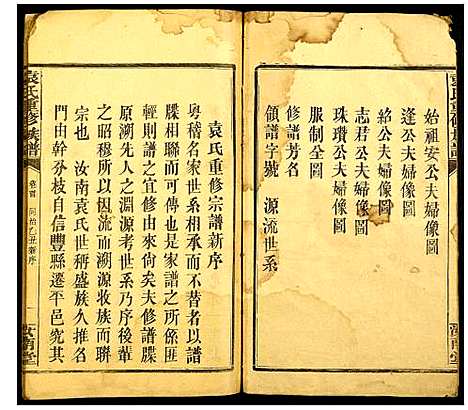 袁氏重修族譜
始祖安公夫婦像圖
逢公夫婦像圖
絡公夫婦像圖
志君公夫婦像圖
珠瓚公夫婦像圖
服制全圖
修譜芳名
領譜字號 源流世系
汝南堂
袁氏重修宗譜新序
粵稽名家世系相承而不替者以譜
牒相聯而可傳也是家譜之所係匪
輕則譜之宜修由來尙矣夫修譜牒
原溯先人之淵源考世系乃序後葦
之昭穆所以因流而溯源收族而聯
宗也 汝南袁氏世稱盛族久推名
門由幹分枝自信豐縣遷平邑究其
袁氏重修族譜
卷首 同治乙丑新序
汝南堂